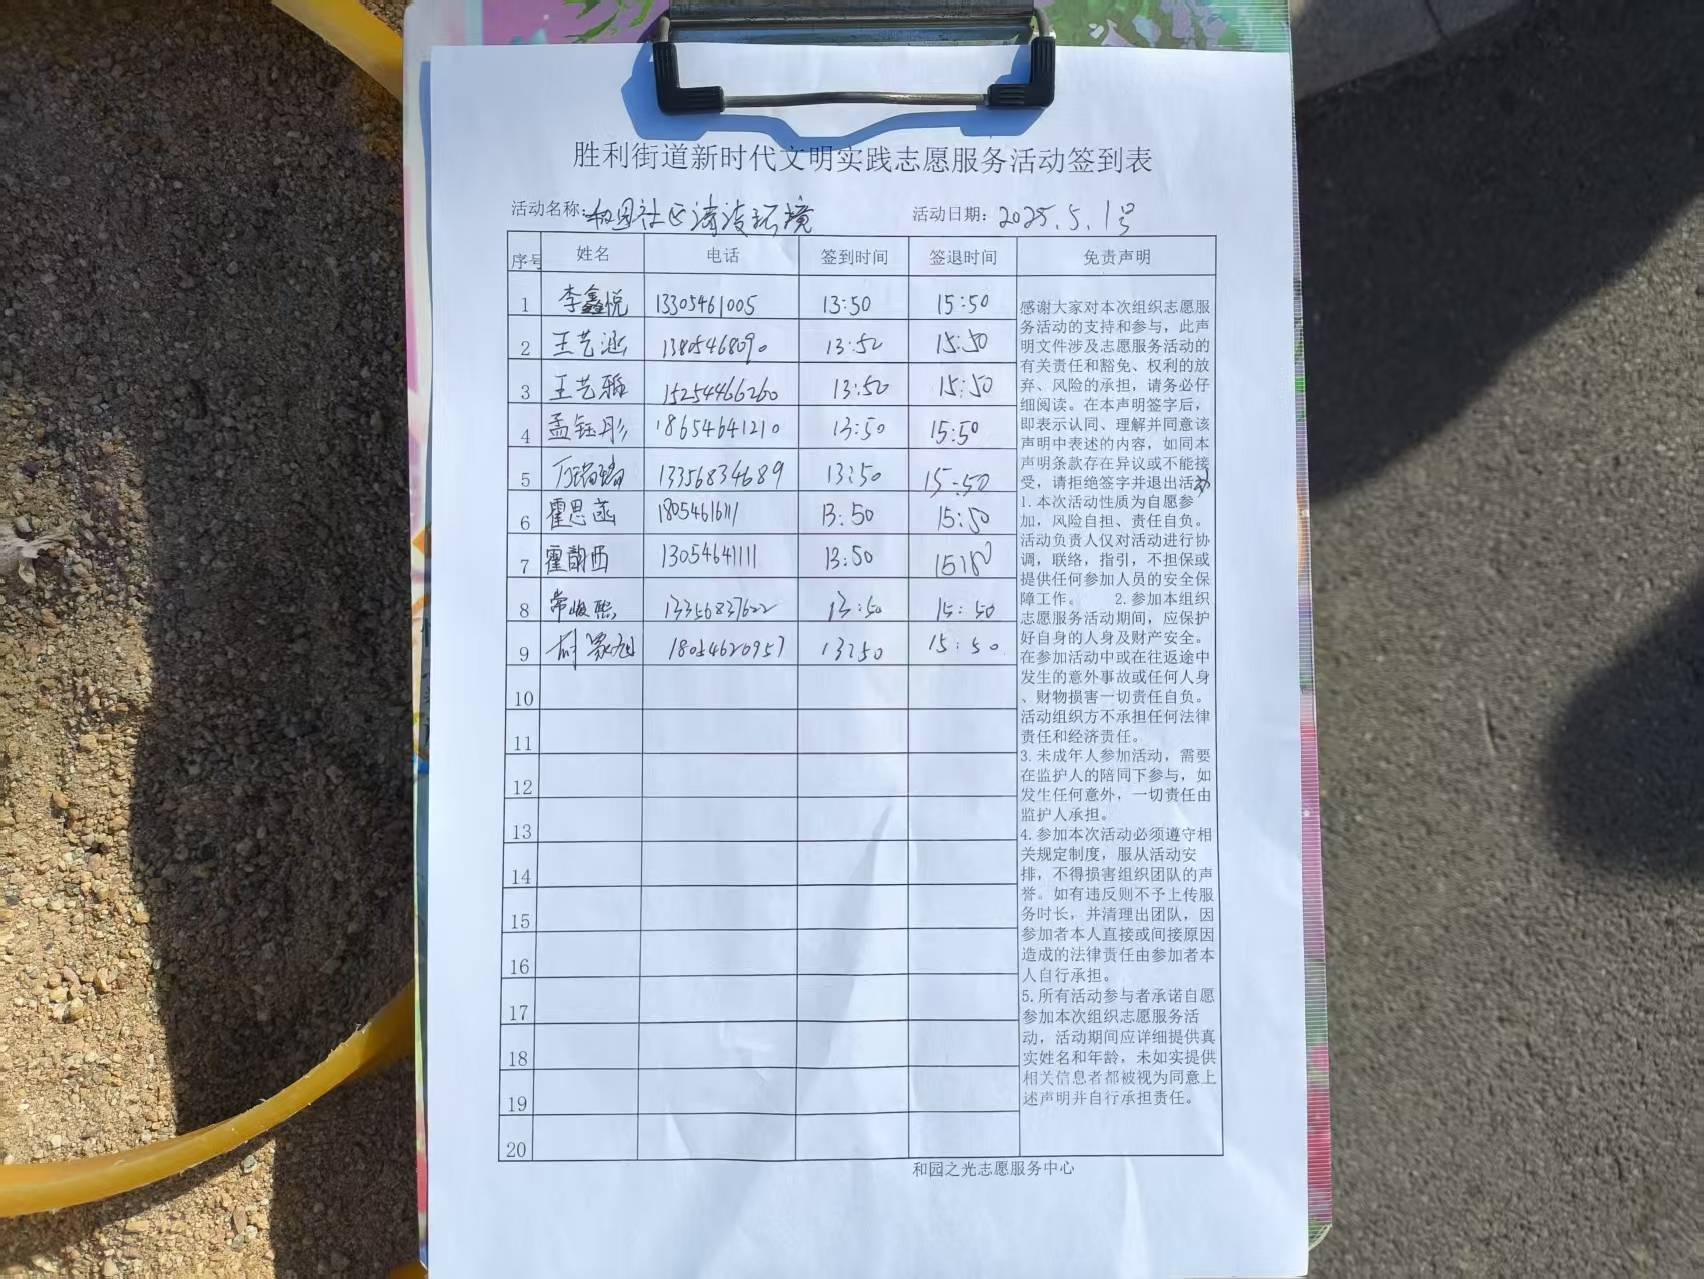 胜利街道新时代文明实践志愿服务活动签到表
活动名称: 和园社区清洁环境 活动日期: 2025.5.1号
序号 姓名 电话 签到时间 签退时间 免责声明
1 李鑫悦 13305461005 13:50 15:50
2 王艺涵 13805468090 13:50 15:50
3 王艺雅 15254466260 13:50 15:50
4 孟钰彤 18654641210 13:50 15:50
5 13356834689 13:50 15:50
6 霍思菡 13:50 15:50
7 霍韵西 13054641111 13:50
8 常峻熙 13356837622 13:50 15:50
9 18054620957 13:50 15:50
10
11
12
13
14
15
16
17
18
19
20
感谢大家对本次组织志愿服
务活动的支持和参与，此声
明文件涉及志愿服务活动的
有关责任和豁免、权利的放
弃、风险的承担，请务必仔
细阅读。在本声明签字后，
即表示认同、理解并同意该
声明中表述的内容，如同本
声明条款存在异议或不能接
受，请拒绝签字并退出活动
1.本次活动性质为自愿参
加，风险自担、责任自负。
活动负责人仅对活动进行协
调，联络，指引，不担保或
提供任何参加人员的安全保
障工作。 2.参加本组织
志愿服务活动期间，应保护
好自身的人身及财产安全。
在参加活动中或在往返途中
发生的意外事故或任何人身
、财物损害一切责任自负。
活动组织方不承担任何法律
责任和经济责任。
3.未成年人参加活动，需要
在监护人的陪同下参与，如
发生任何意外，一切责任由
监护人承担。
4.参加本次活动必须遵守相
关规定制度，服从活动安
排，不得损害组织团队的声
誉。如有违反则不予上传服
务时长，并清理出团队，因
参加者本人直接或间接原因
造成的法律责任由参加者本
人自行承担。
5.所有活动参与者承诺自愿
参加本次组织志愿服务活
动，活动期间应详细提供真
实姓名和年龄，未如实提供
相关信息者都被视为同意上
述声明并自行承担责任。
和园之光志愿服务中心